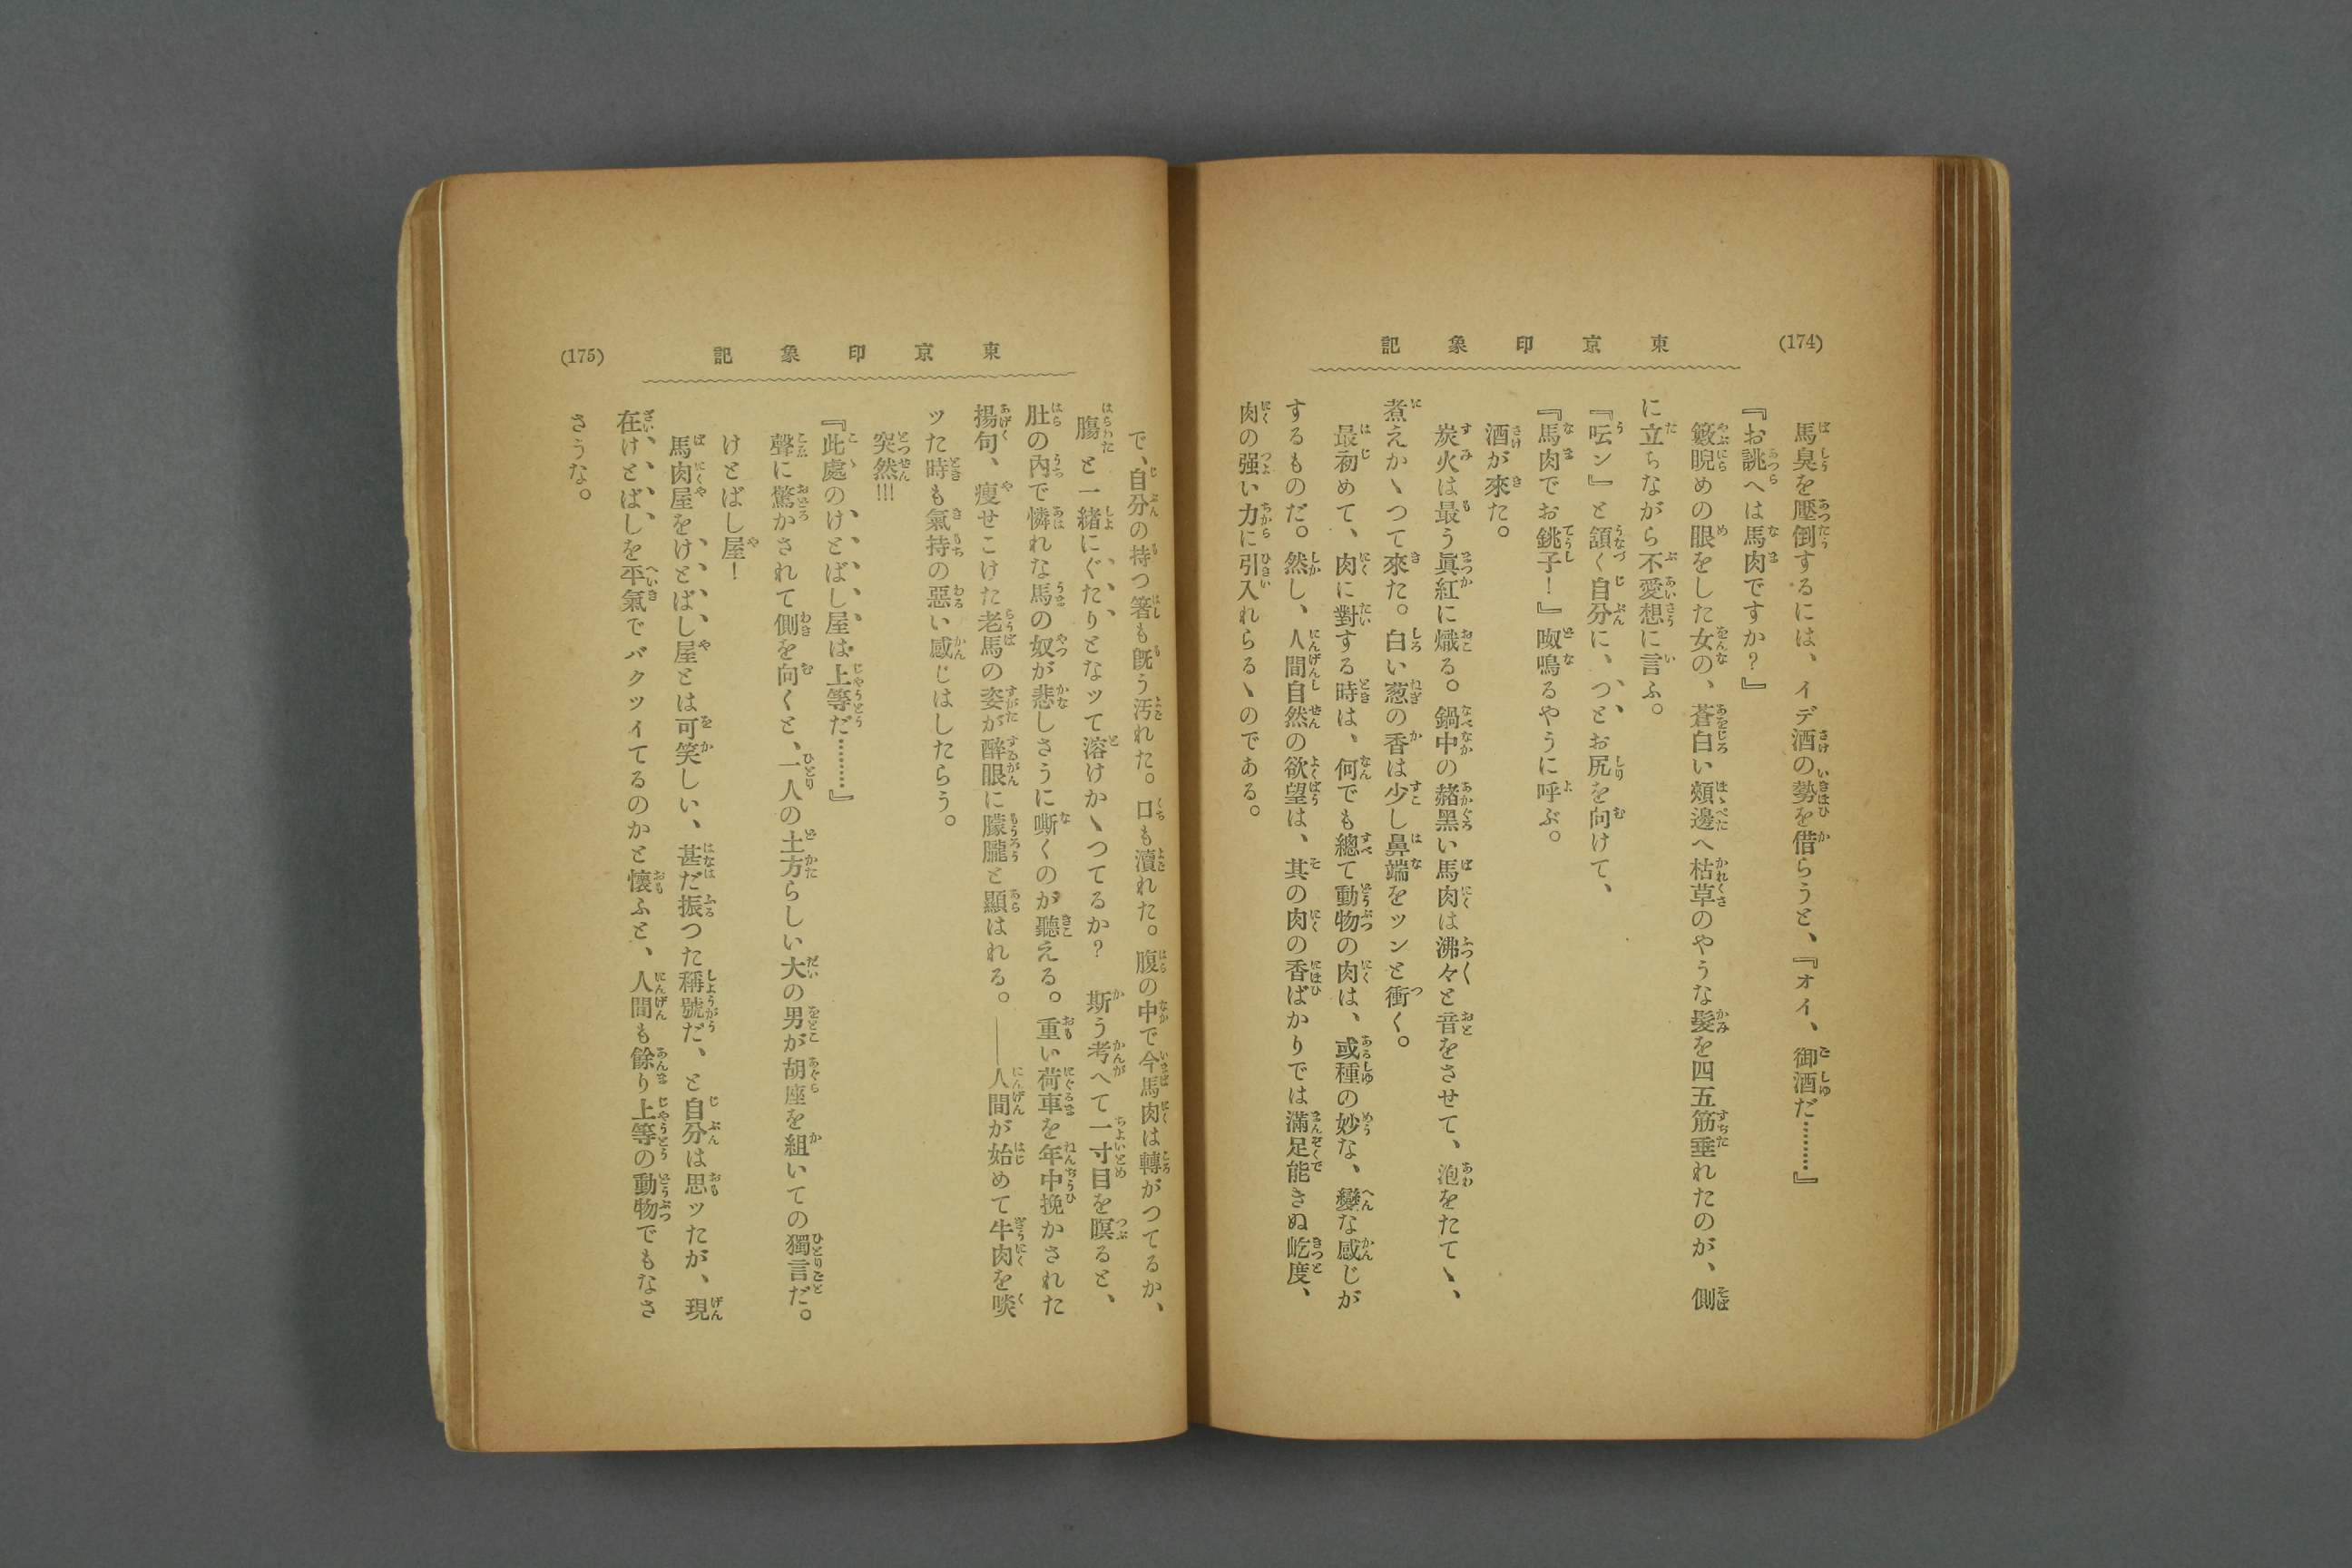 (174)
東京印象記
馬臭を壓倒するには、イデ酒の勢を借らうと、『オイ、御酒だ………』
『お誂へは馬肉ですか？』
籔睨めの眼をした女の、蒼白い頰邊へ枯草のやうな髮を四五筋垂れたのが、側
に立ちながら不愛想に言ふ。
『呍ン』と頷く自分に、つとお尻を向けて、
『馬肉でお銚子！』呶鳴るやうに呼ぶ。
酒が來た。
炭火は最う眞紅に熾る。鍋中の赭黑い馬肉は沸々と音をさせて、泡をたてゝ、
煮えかゝつて來た。白い葱の香は少し鼻端をツンと衝く。
最初めて、肉に對する時は、何でも總て動物の肉は、或種の妙な、變な感じが
するものだ。然し、人間自然の欲望は、其の肉の香ばかりでは滿足能きぬ屹度、
肉の强い力に引入れらるゝのである。
東京印象記
(175)
で、自分の持つ箸も旣う汚れた。口も瀆れた。腹の中で今馬肉は轉がつてるか、
膓と一緒にぐたりとなッて溶けかゝつてるか？　斯う考へて一寸目を瞑ると、
肚の內で憐れな馬の奴が悲しさうに嘶くのが聽える。重い荷車を年中挽かされた
揚句、瘦せこけた老馬の姿が醉眼に朦朧と顯はれる。――人間が始めて牛肉を啖
ッた時も氣持の惡い感じはしたらう。
突然!!!
『此處のけとばし屋は上等だ………』
聲に驚かされて側を向くと、一人の土方らしい大の男が胡座を組いての獨言だ。
けとばし屋！
馬肉屋をけとばし屋とは可笑しい、甚だ振つた稱號だ、と自分は思ッたが、現
在けとばしを平氣でバクツイてるのかと懷ふと、人間も餘り上等の動物でもなさ
さうな。